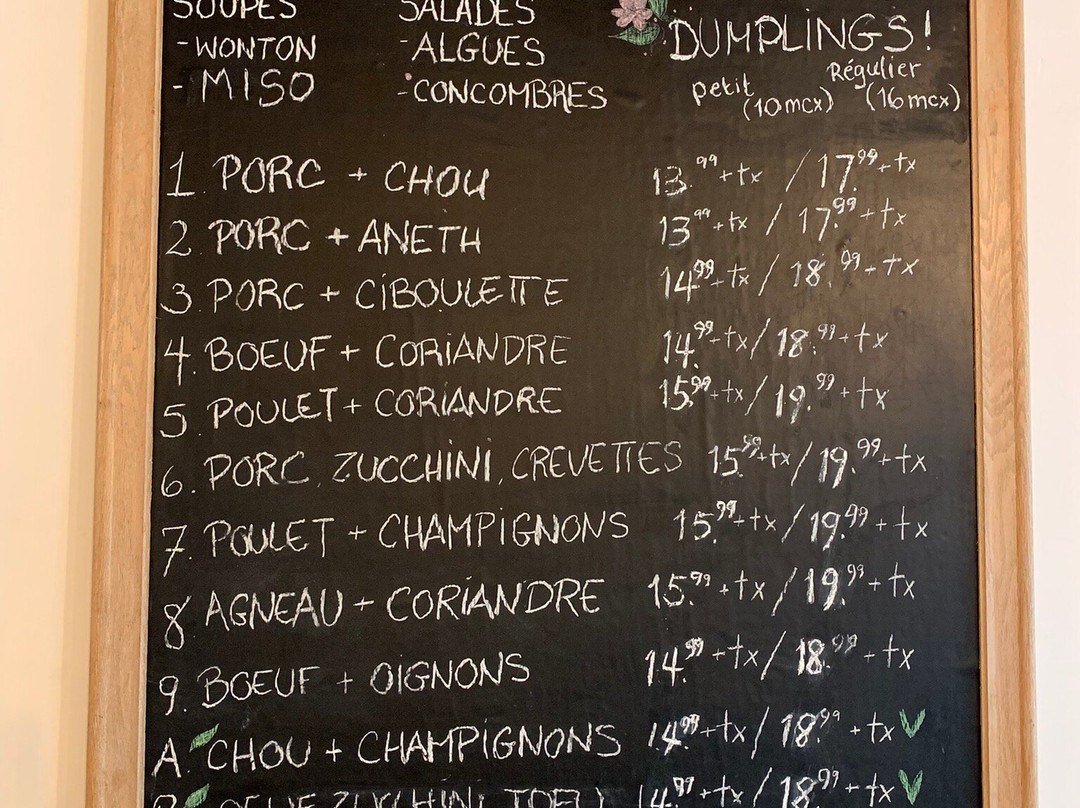 SOUPES
- WONTON
- MISO
SALADES
- ALGUES
- CONCOMBRES
DUMPLINGS!
petit Régulier
(10mcx) (16mcx)
1. PORC + CHOU 13.99+tx / 17.99+tx
2. PORC + ANETH 13.99+tx / 17.99+tx
3. PORC + CIBOULETTE 14.99+tx / 18.99+tx
4. BOEUF + CORIANDRE 14.99+tx / 18.99+tx
5. POULET + CORIANDRE 15.99+tx / 19.99+tx
6. PORC, ZUCCHINI, CREVETTES 15.99+tx / 19.99+tx
7. POULET + CHAMPIGNONS 15.99+tx / 19.99+tx
8. AGNEAU + CORIANDRE 15.99+tx / 19.99+tx
9. BOEUF + OIGNONS 14.99+tx / 18.99+tx
A. CHOU + CHAMPIGNONS 14.99+tx / 18.99+tx V
ZUCCHINI, TOFU 14.99+tx / 18.99+tx V